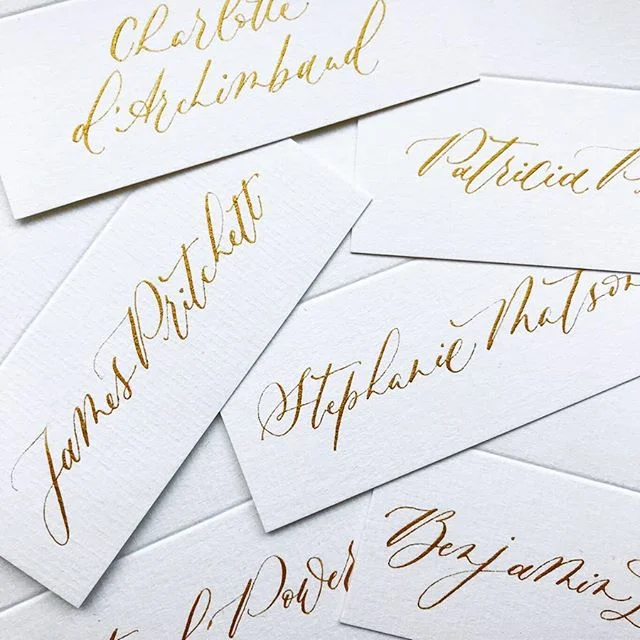 Charlotte
d'Archimbaud
Patricia P
James Pritchett
Stephanie Matson
Benjamin
Power